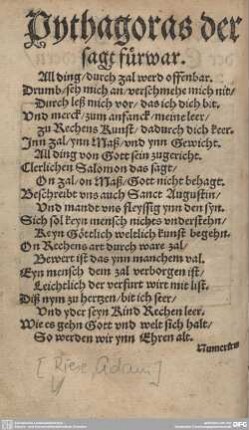 Pythagoras der
sagt fürwar.
All ding/durch zal werd offenbar.
Drumb/seh mich an/verschmehe mich nit/
Durch leß mich vor/das ich dich bit.
Vnd merck/zum anfanck/meine leer/
zu Rechens Kunst/dadurch dich keer.
Inn zal/ynn Maß/vnd ynn Gewicht.
All ding von Gott sein zugericht.
Clerlichen Salomon das sagt/
On zal/on Maß/Gott nicht behagt.
Beschreibt vns auch Sanct Augustin/
Vnd manbt vns fleyssig ynn den syn.
Sich sol keyn mensch nichts vndersthen/
Keyn Göttlich weltlich kunst begehn.
On Rechens art durch ware zal/
Bewert ist das ynn manchem val.
Eyn mensch dem zal verborgen ist/
Leichtlich der verfurt wirt mit list.
Diß nym zu hertzen/bit ich seer/
Vnd yder seyn Kind Rechen leer.
Wie es gehn Gott vnd welt sich halt/
So werden wir ynn Ehren alt.
Numerirn
[Riese, Adam]